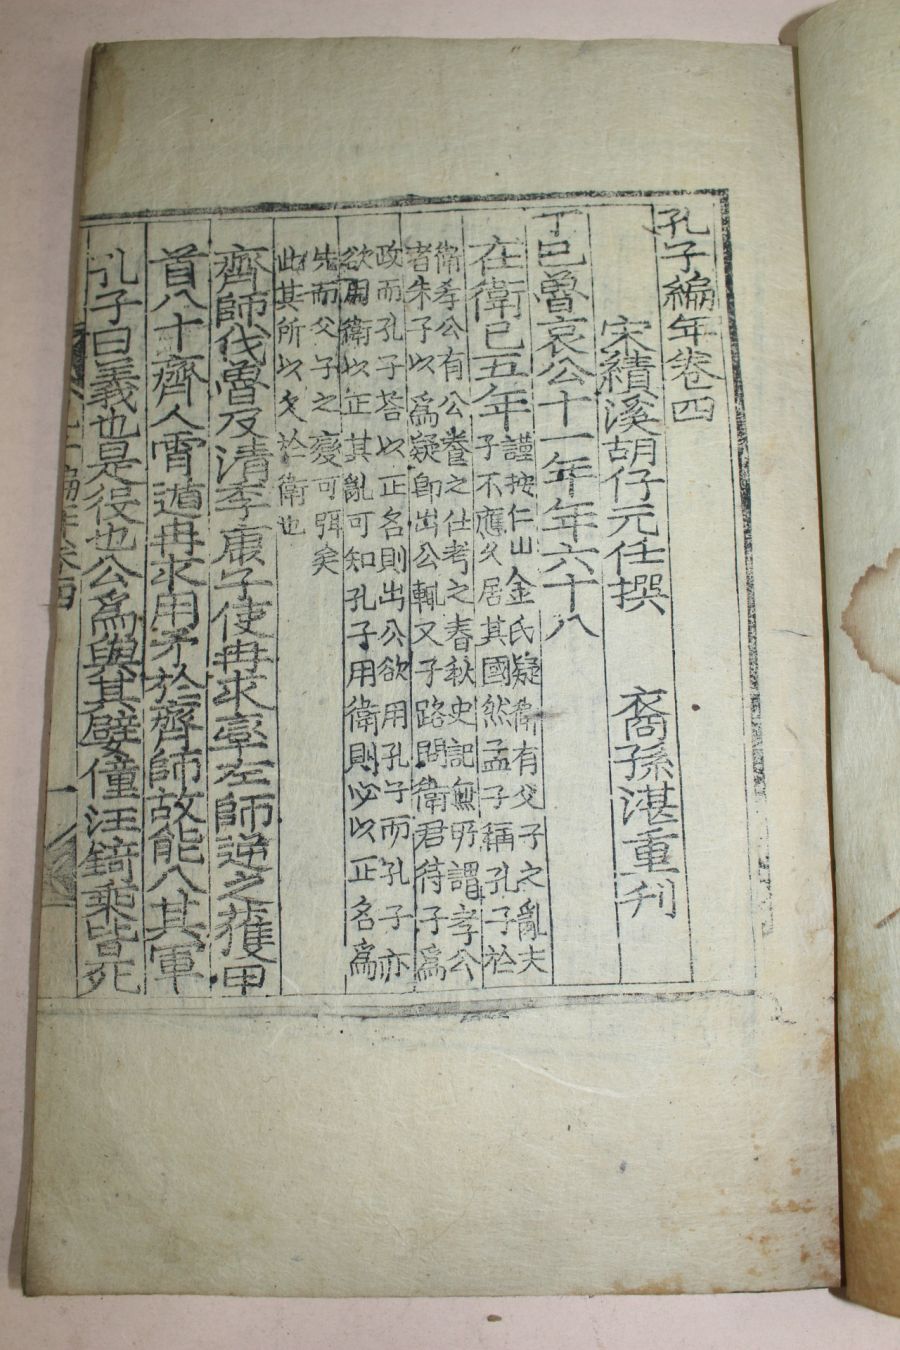 孔子編年卷四
宋績溪胡仔元任撰 裔孫湛重刋
丁巳魯哀公十一年年六十八
在衛已五年
謹按仁山金氏疑衛有父子之亂夫
子不應久居其國然孟子稱孔子於
衛孝公有公養之仕考之春秋史記無所謂孝公
者朱子以爲疑卽出公輒又子路問衛君待子爲
政而孔子荅以正名則出公欲用孔子而孔子亦
欲用衛以正其亂可知孔子用衛則必以正名爲
先而父子之變可弭矣
此其所以久於衛也
齊師伐魯及清季康子使冉求率左師逆之獲甲
首八十齊人宵遁冉求用矛於齊師故能入其軍
孔子曰義也是役也公爲與其嬖僮汪錡乘皆死